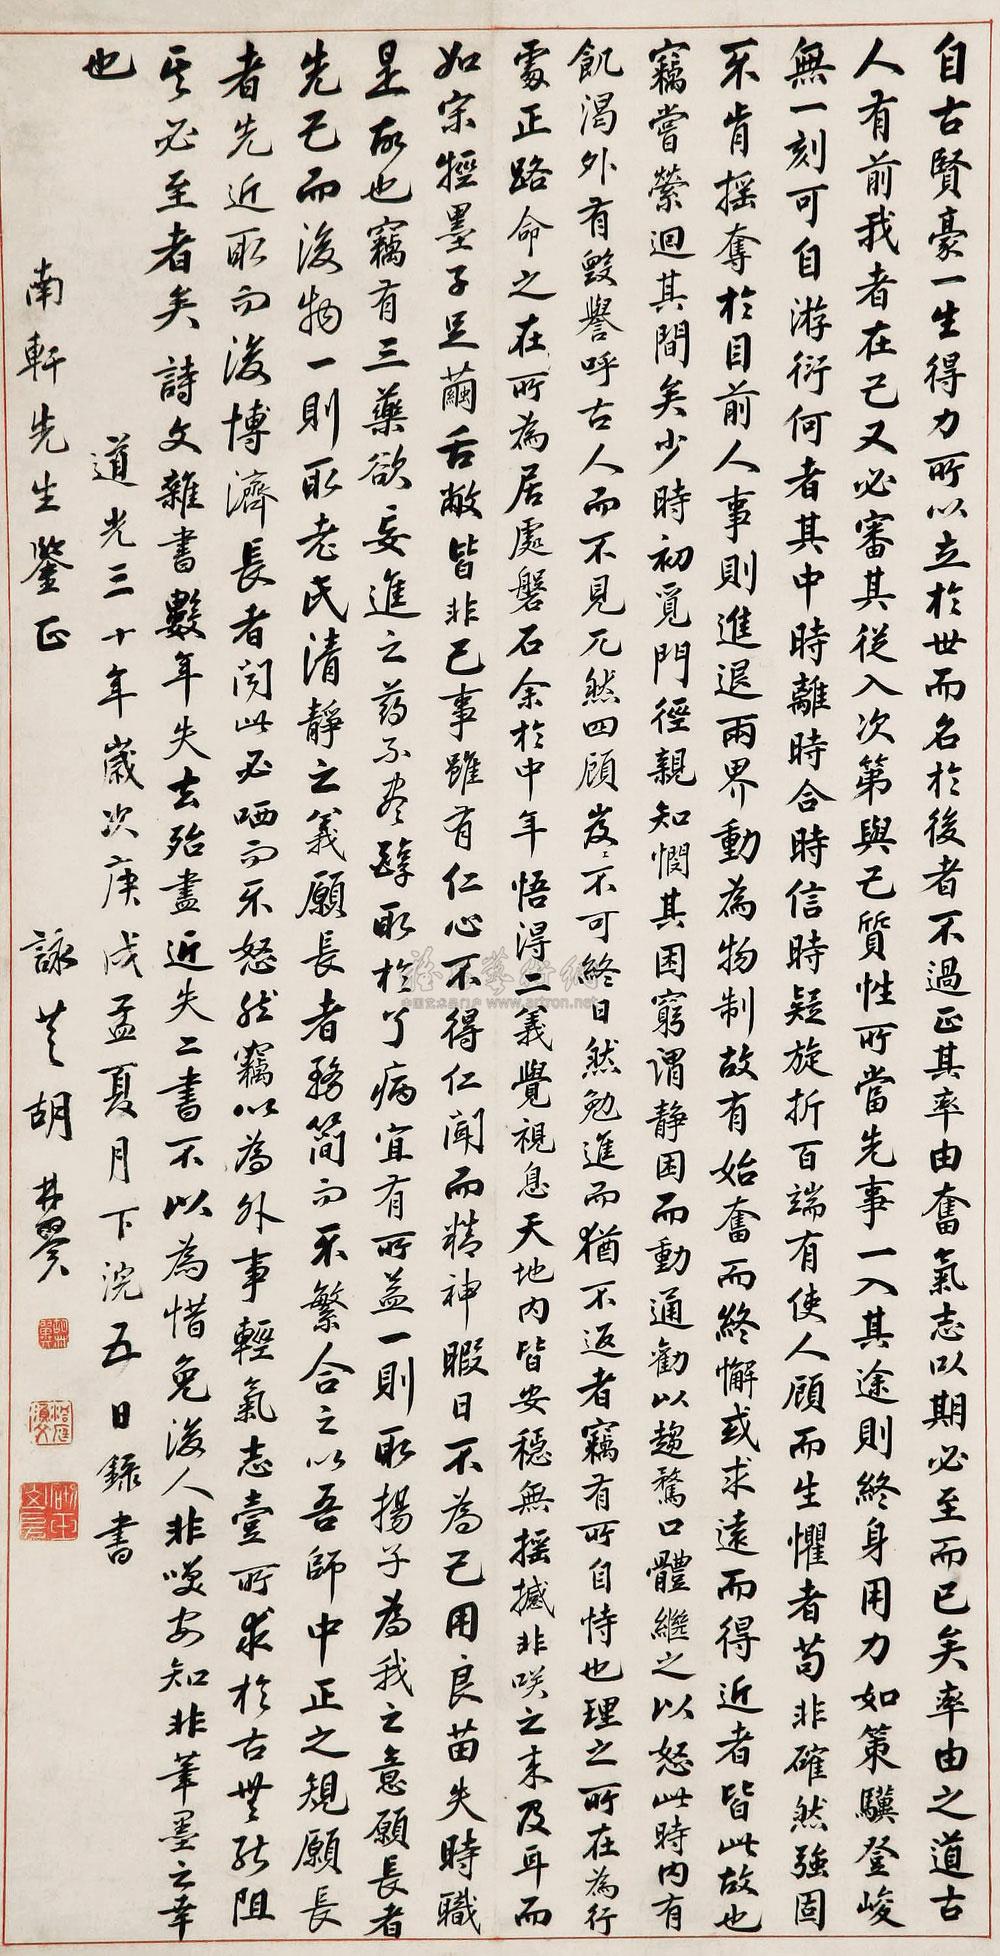 自古賢豪一生得力所以立於世而名於後者不過正其率由奮氣志以期必至而已矣率由之道古
人有前我者在己又必審其從入次第與己質性所當先事一入其途則終身用力如策驥登峻
無一刻可自游衍何者其中時離時合時信時疑旋折百端有使人顧而生懼者苟非確然強固
不肯搖奪於目前人事則進退兩界動為物制故有始奮而終懈或求遠而得近者皆此故也
竊嘗縈迴其間矣少時初覓門徑親知憫其困窮謂靜困而動通勸以趨騖口體繼之以怒此時內有
飢渴外有毀譽呼古人而不見兀然四顧岌岌不可終日然勉進而猶不返者竊有所自恃也理之所在為行
處正路命之在所為居處磐石余於中年悟得二義覺視息天地內皆安穩無搖撼非咲之來及耳而
如宗牼墨子足繭舌敝皆非己事雖有仁心不得仁聞而精神暇日不為己用良苗失時職
是故也竊有三藥欲妄進之藥不盡醇取於了病宜有所益一則取揚子為我之意願長者
先己而後物一則取老氏清靜之義願長者務簡而不繁合之以吾師中正之規願長
者先近取而後博濟長者閱此必哂而不怒然竊以為外事輕氣志壹所求於古無能阻
其必至者矣詩文雜書數年失去殆盡近失二書不以為惜免後人非笑安知非筆墨之幸
也
道光三十年歲次庚戌孟夏月下浣五日錄書
南軒先生鑒正
詠芝胡林翼
雅昌藝術網
中国艺术品门户 www.artron.net